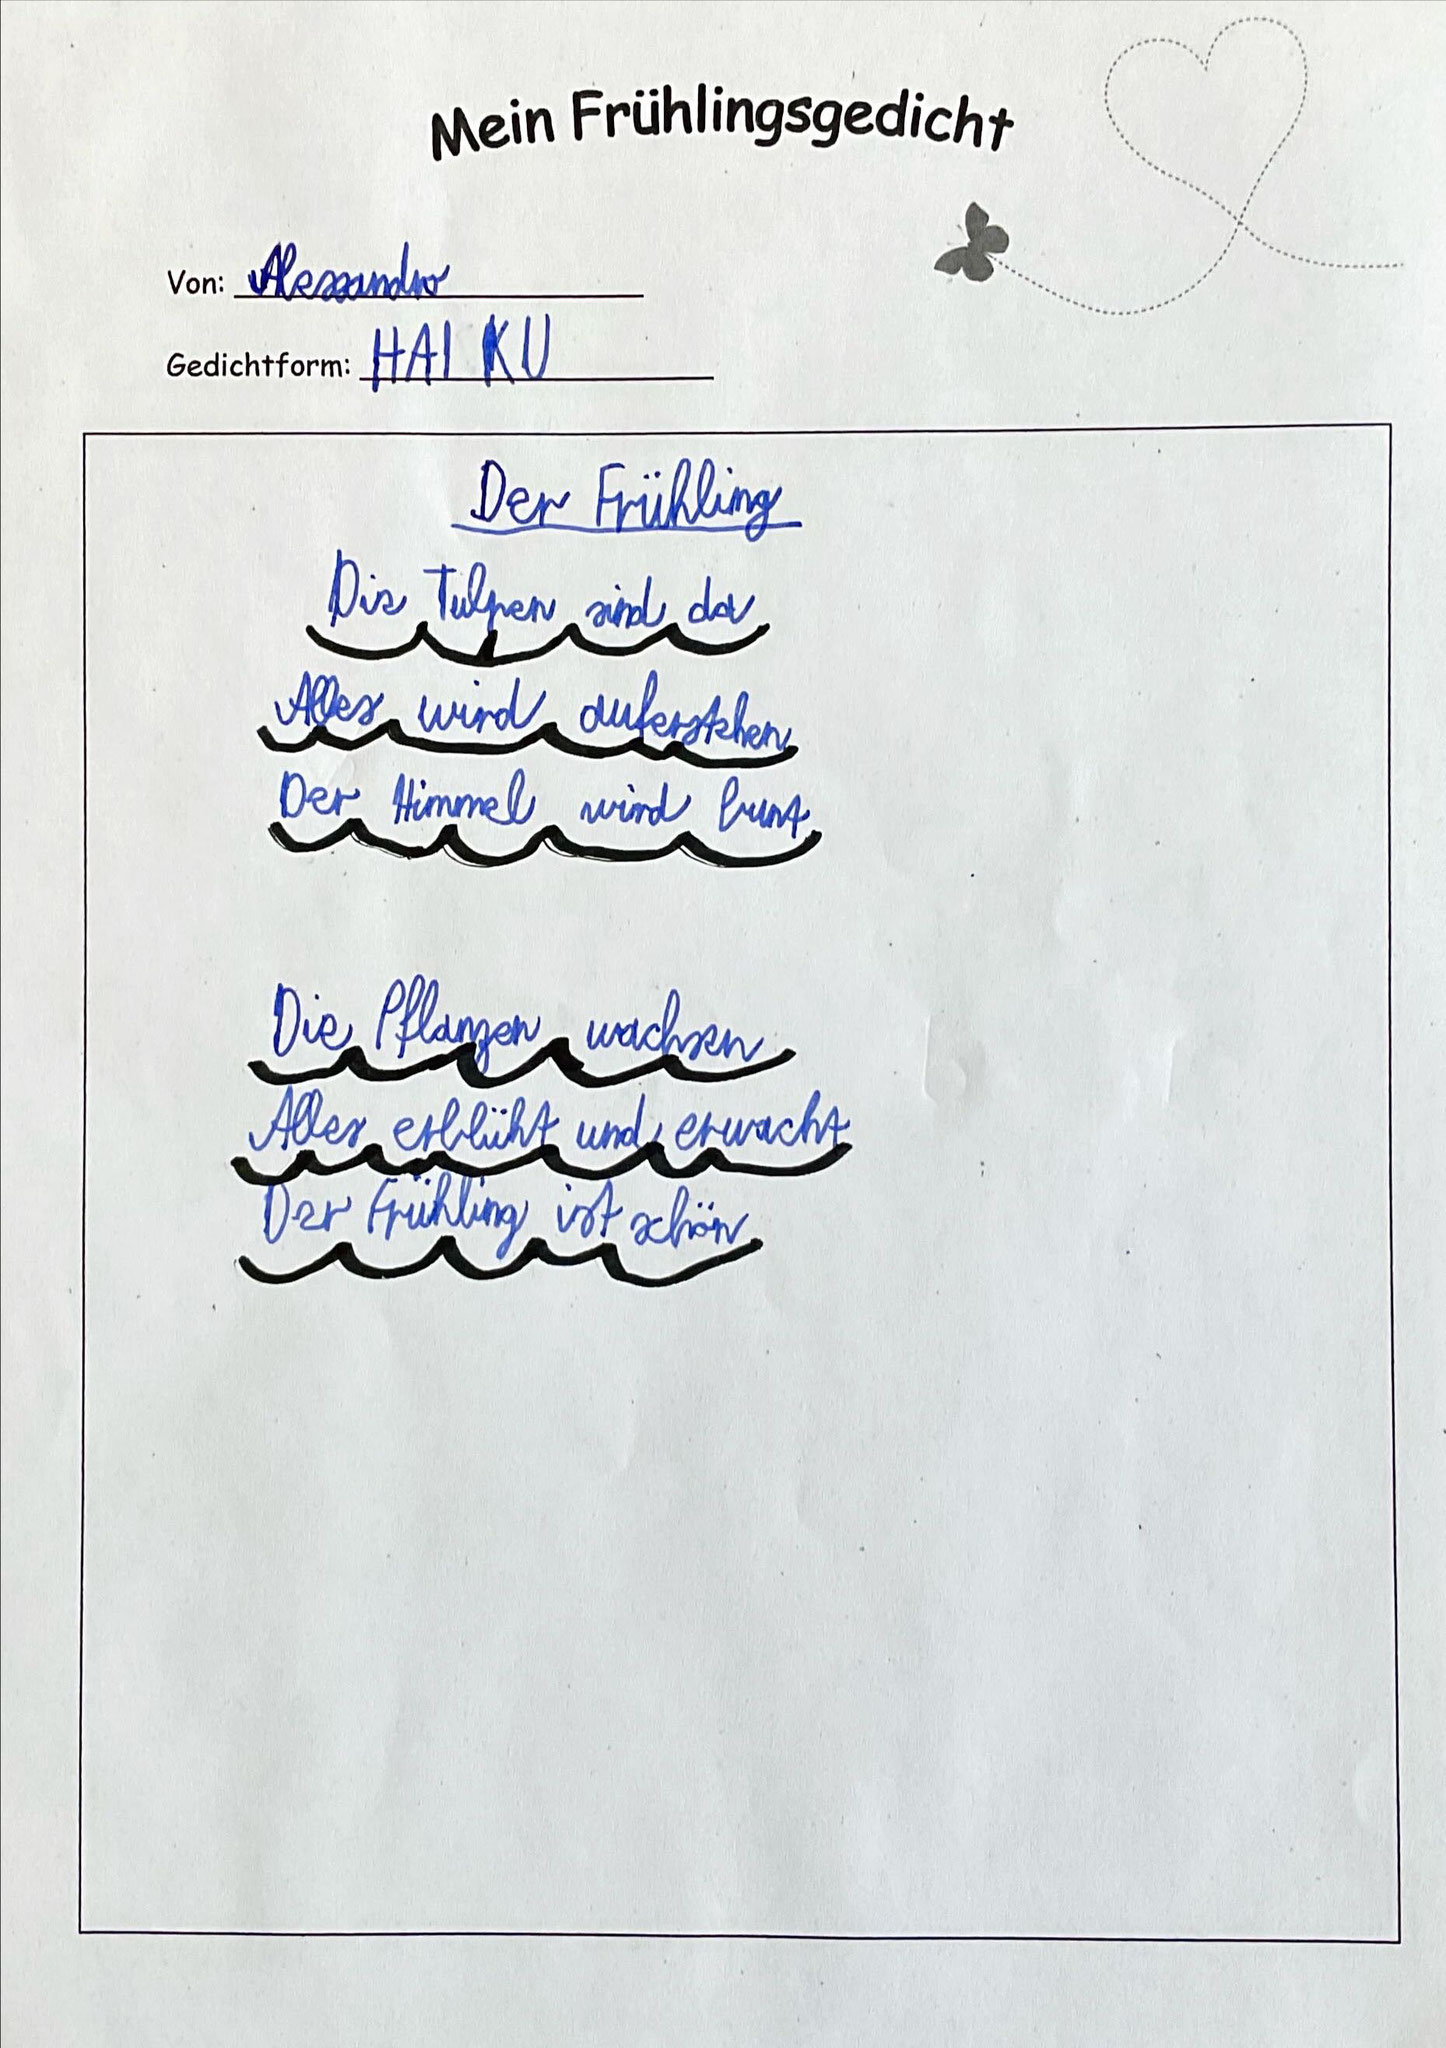 Mein Frühlingsgedicht
Von: Alessandro
Gedichtform: HAIKU
Der Frühling
Die Tulpen sind da
Alles wird auferstehen
Der Himmel wird bunt
Die Pflanzen wachsen
Alles erblüht und erwacht
Der Frühling ist schön